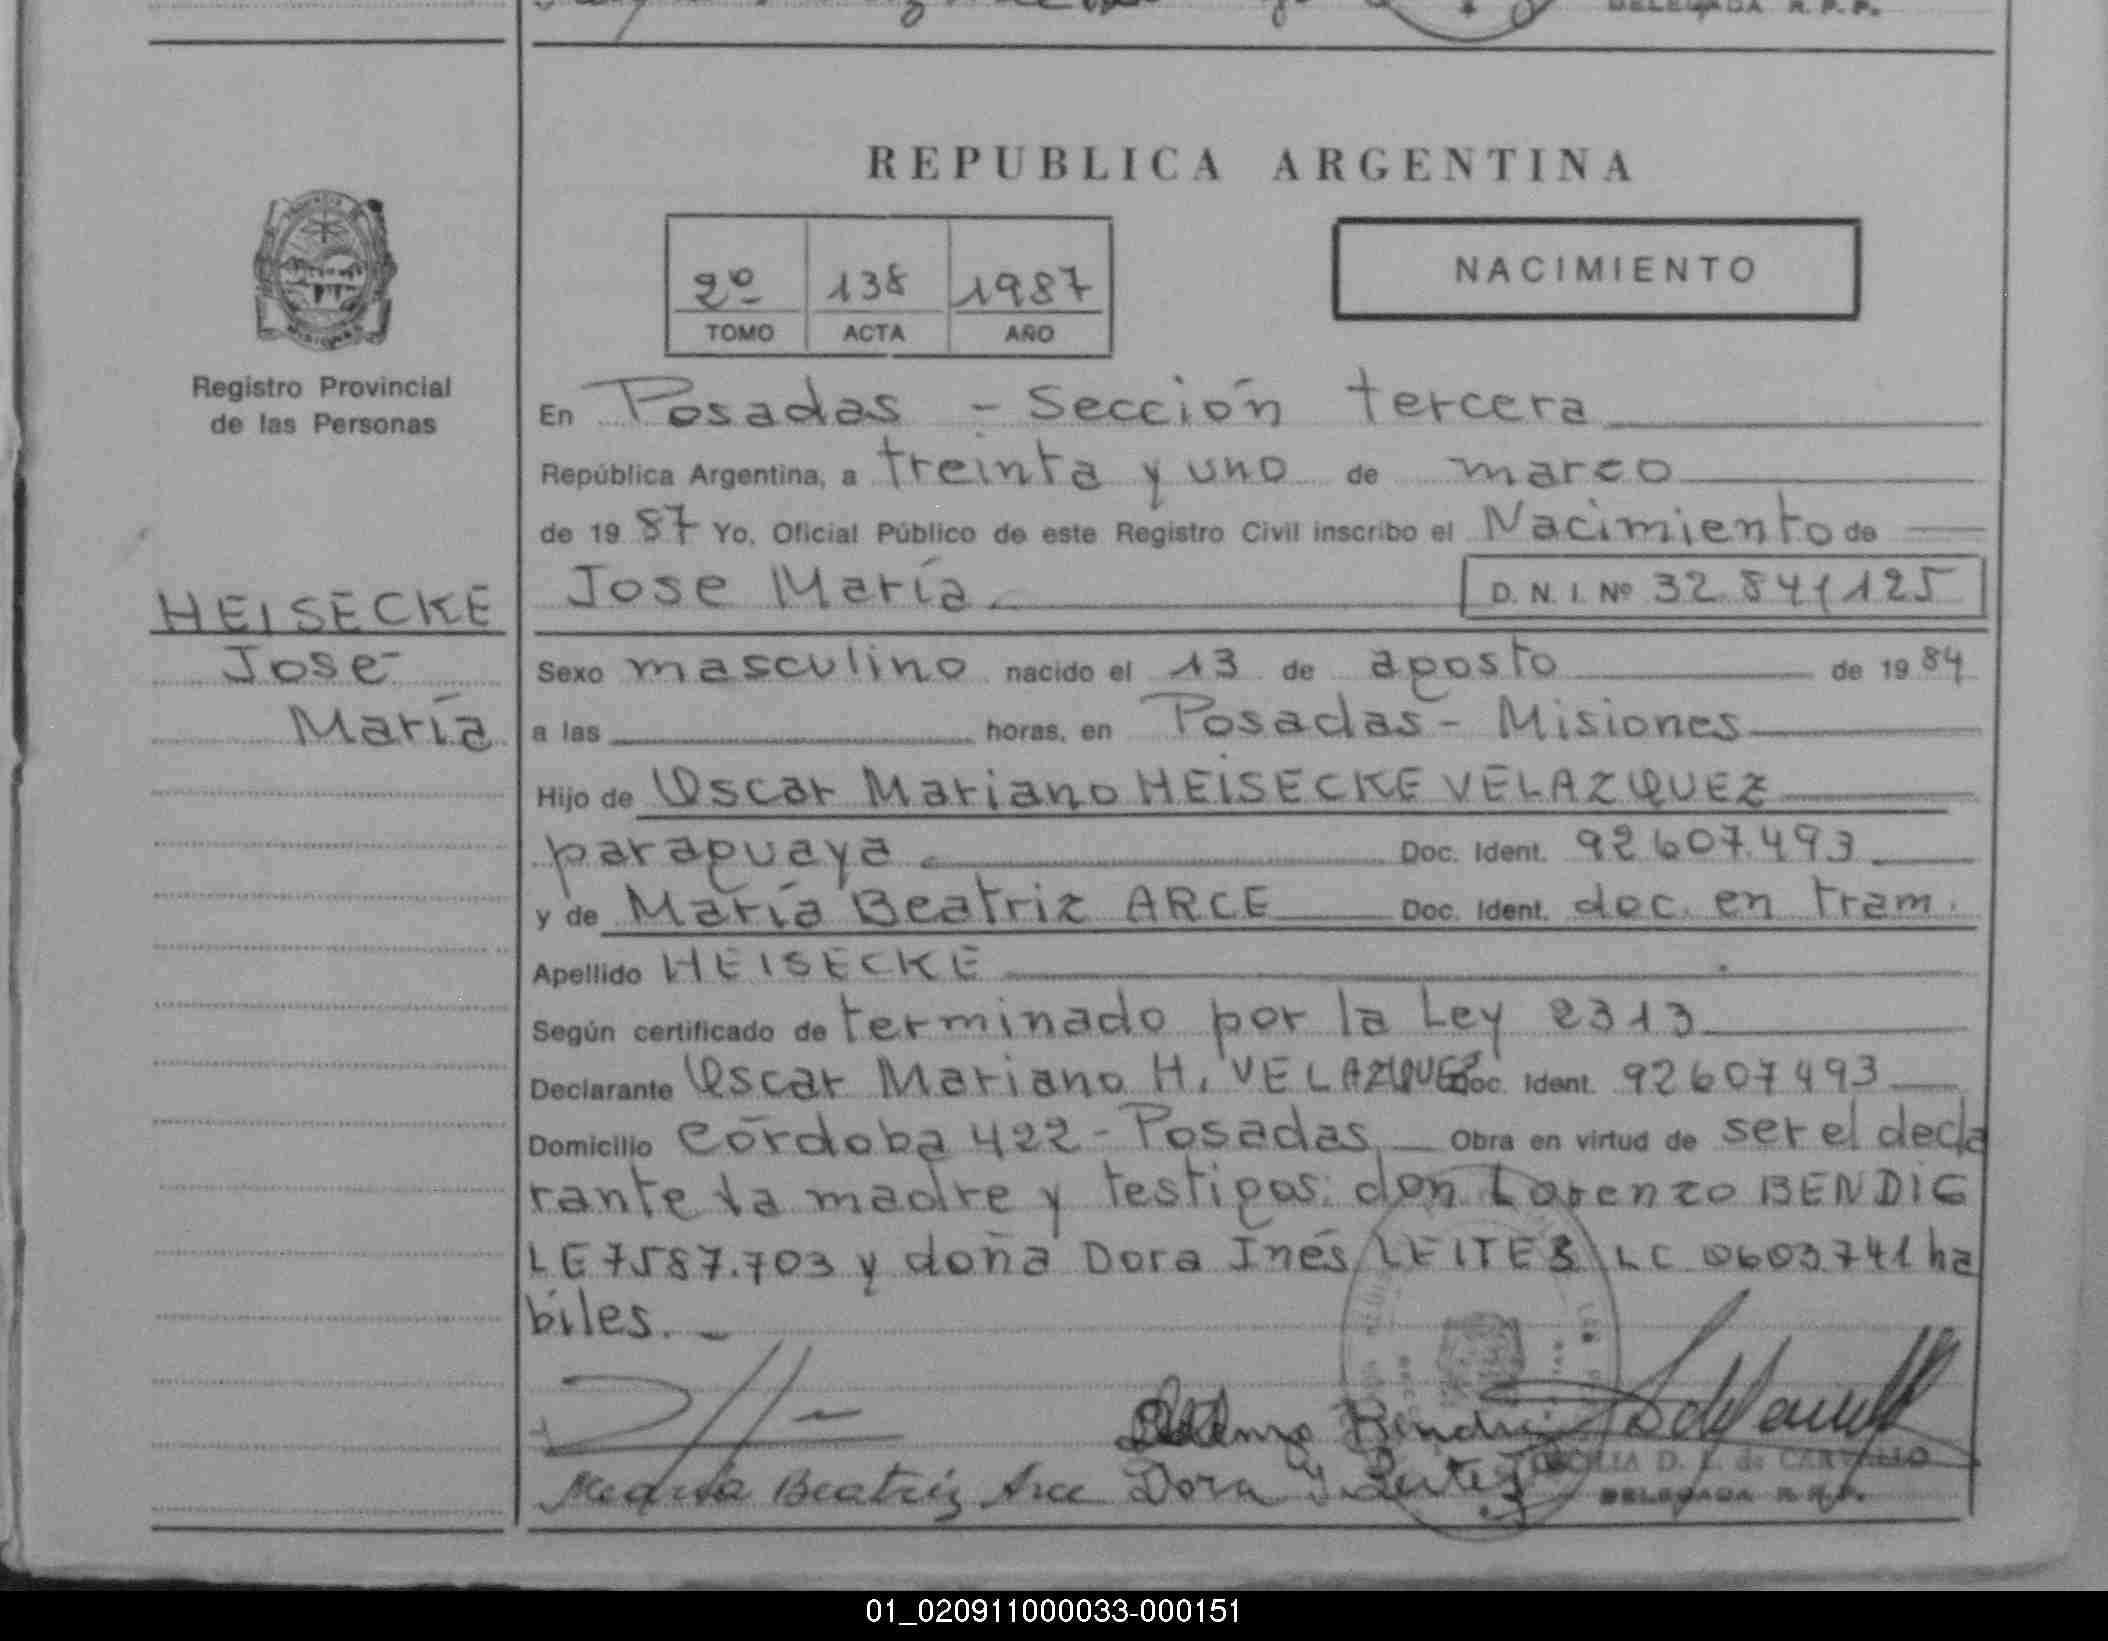 DELEGADA R.P.P.
REPUBLICA ARGENTINA
2º 138 1987
TOMO ACTA AÑO
NACIMIENTO
Registro Provincial
de las Personas
En Posadas - Sección tercera
República Argentina, a treinta y uno de marzo
de 19 87 Yo, Oficial Público de este Registro Civil inscribo el Nacimiento de
Jose María D. N. I. Nº 32.841125
HEISECKE
José
María
Sexo masculino nacido el 13 de agosto de 19 84
a las horas, en Posadas - Misiones
Hijo de Oscar Mariano HEISECKE VELAZQUEZ
paraguaya Doc. Ident. 92607.493
y de María Beatriz ARCE Doc. Ident. doc. en tram.
Apellido HEISECKE
Según certificado de terminado por la Ley 2313
Declarante Oscar Mariano H. VELAZQUEZ Doc. Ident. 92607493
Domicilio Córdoba 422 - Posadas Obra en virtud de ser el decla
rante la madre y testigos: don Lorenzo BENDIG
LE 7587.703 y doña Dora Inés LEITES LC 0603741 ha
biles.
María Beatriz Arce Dora I. Leites
D. L. de CARVALLO
DELEGADA R.P.P.
01_020911000033-000151